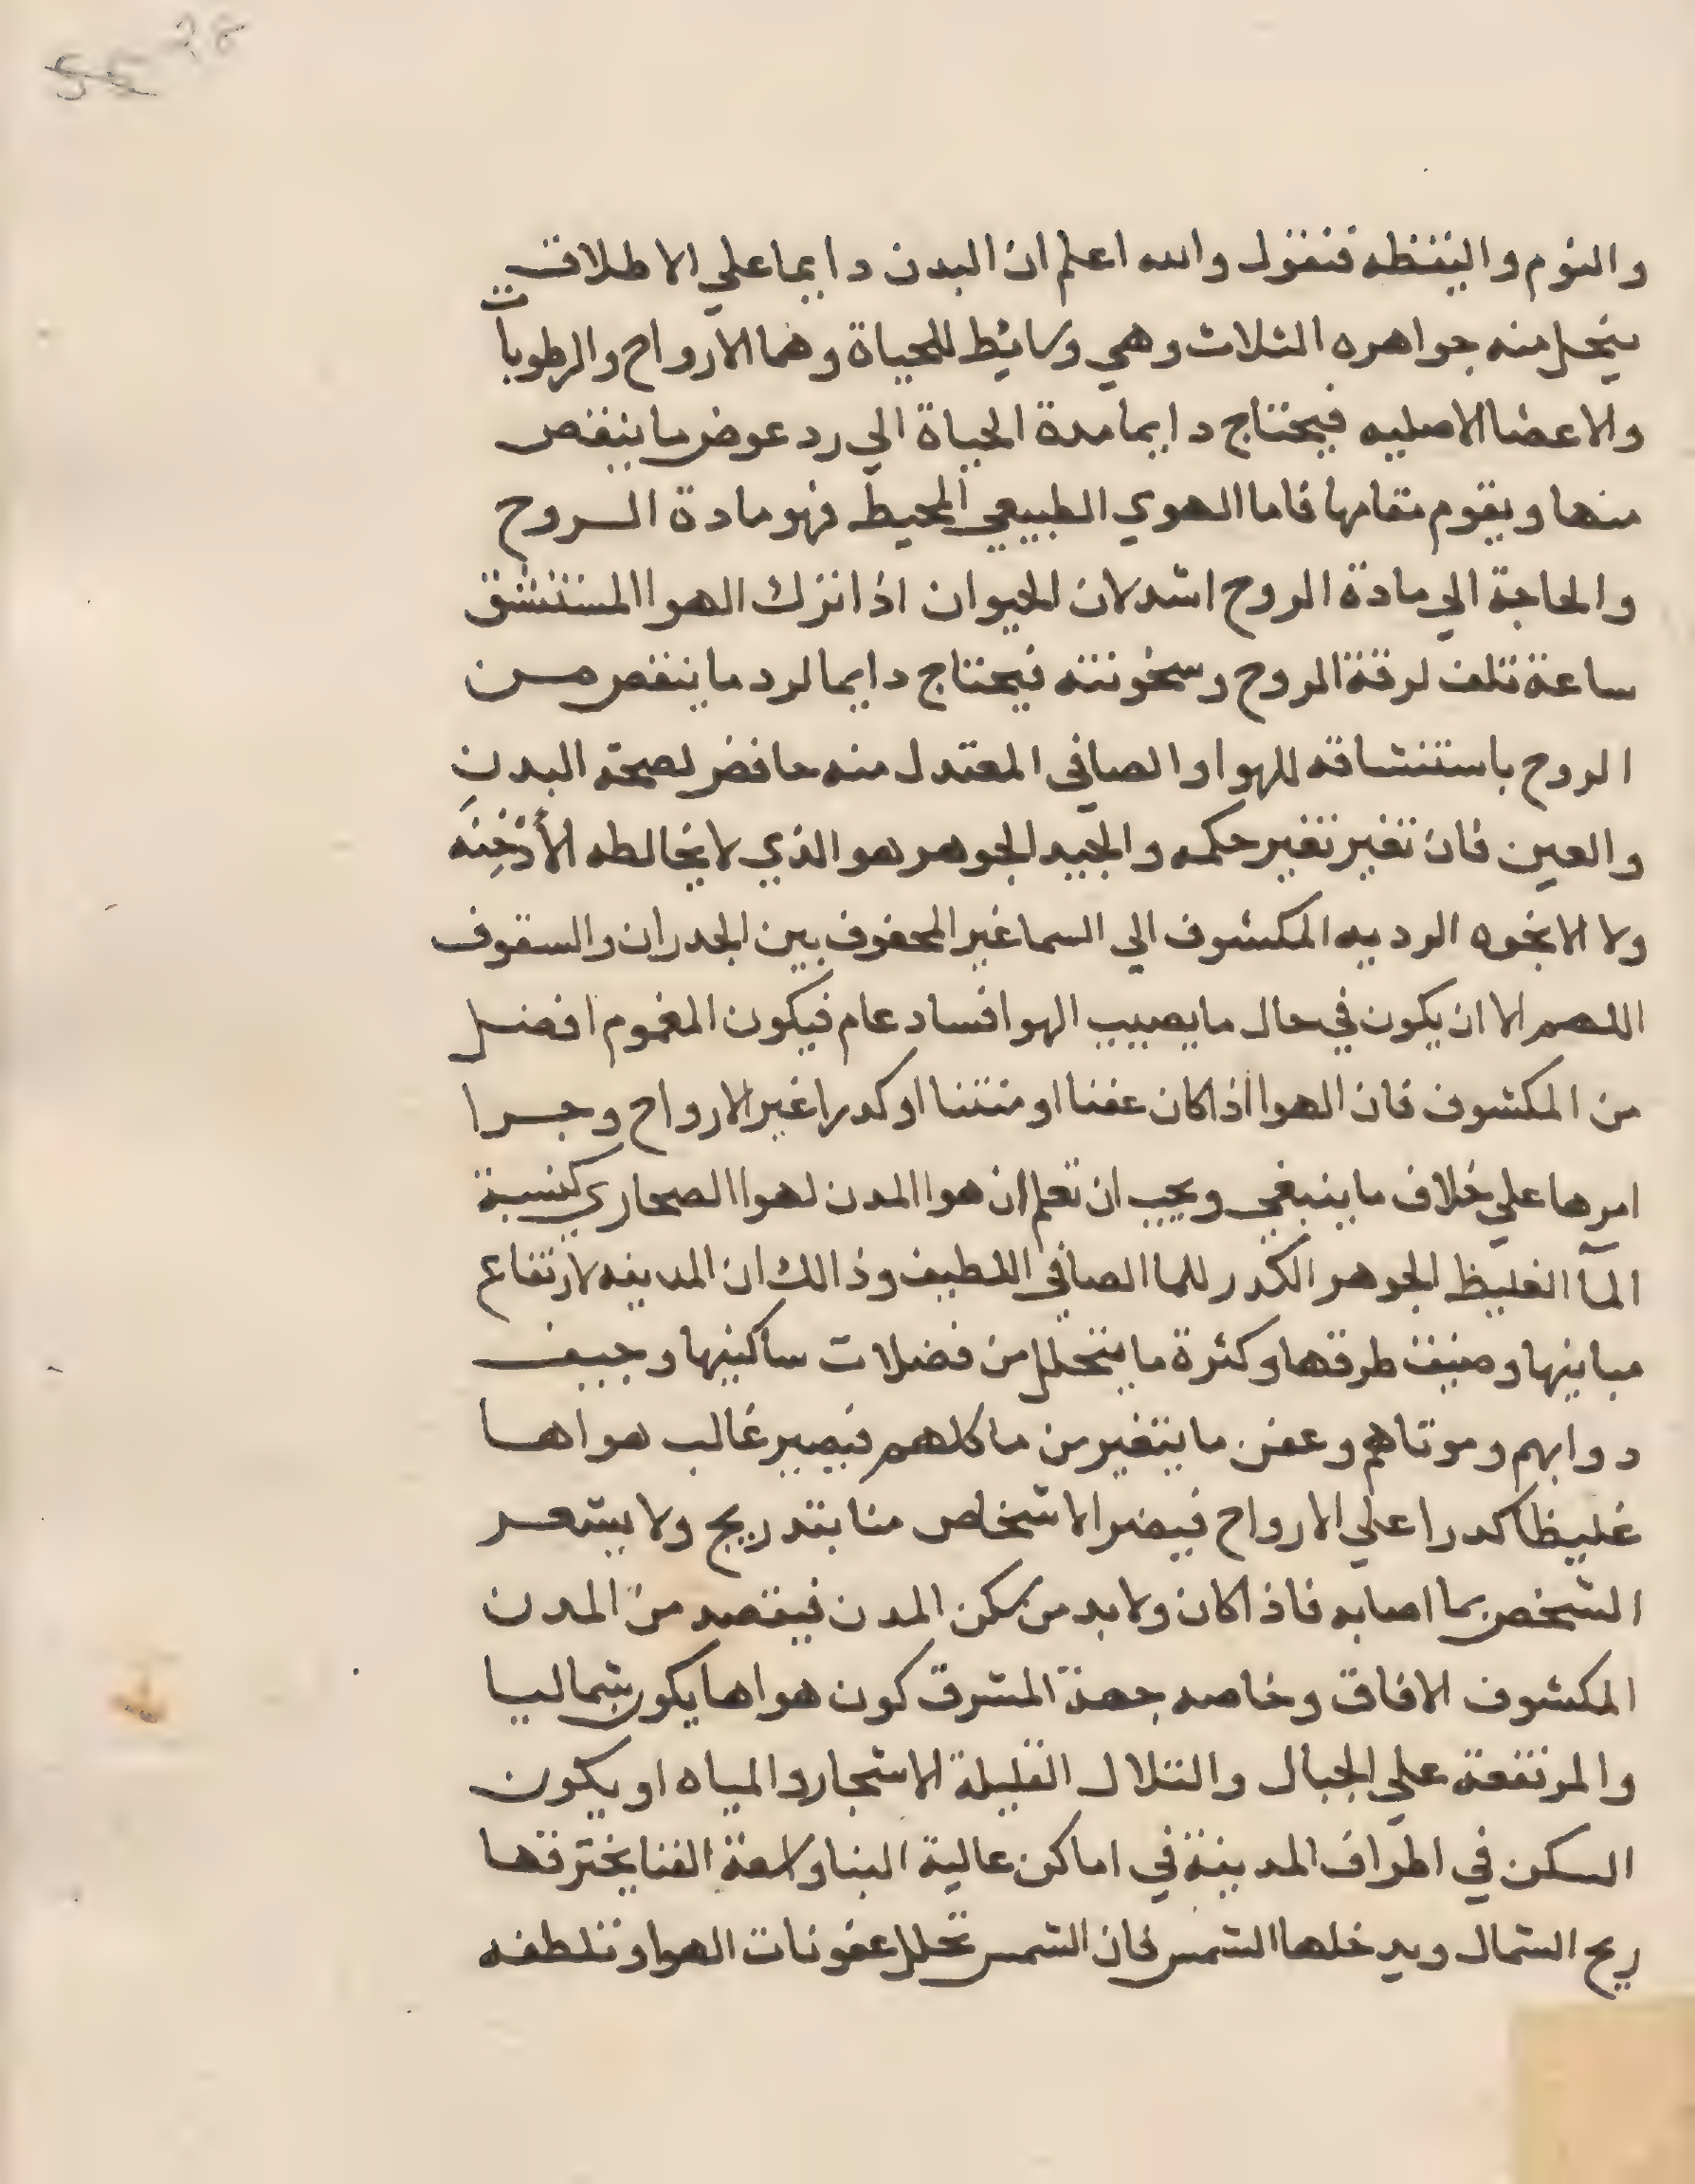 28
55
والنوم واليقظه فنقول والله اعلم ان البدن دايما علي الاطلاق
يتحل منه جواهره الثلاث وهي وسائط للحياة وهما الارواح والرطوبات
والاعضا الاصليه فيحتاج دايما مدة الحياة الي رد عوض ما ينقص
منها ويقوم مقامها فاما الهوي الطبيعي المحيط فهو مادة الروح
والحاجة الي مادة الروح اشد لان الحيوان اذا ترك الهوا المستنشق
ساعة تلف لرقة الروح وسخونته فيحتاج دايما لرد ما ينقص من
الروح باستنشاقه للهوا والصافي المعتدل منه حافض لصحة البدن
والعين فان تغير تغير حكمه والجيد الجوهر هو الذي لا يخالطه الأدخِنَه
ولا الابخره الرديه المكشوف الي السما غير المحفوف بين الجدران والسقوف
اللهم الا ان يكون في حال ما يصيب الهوا فساد عام فيكون المغموم افضل
من المكشوف فان الهوا اذا كان عفنا او منتنا او كدرا غير الارواح وجرا
امرها علي خلاف ما ينبغي ويجب ان تعلم ان هوا المدن لهوا الصحاري كنسبة
المآ الغليظ الجوهر الكدر للما الصافي اللطيف وذالك ان المدينه لارتفاع
مبانيها وضيق طرقها وكثرة ما يتحلل من فضلات ساكنيها وجيف
دوابهم وموتاهم وعفن ما يتغير من ماكلهم فيصير غالب هواها
غليظا كدرا علي الارواح فيضر الاشخاص منا بتدريج ولا يشعر
الشخص بما اصابه فاذا كان ولا بد من سكن المدن فيقصد من المدن
المكشوف الافاق وخاصه جهة المشرق كون هواها يكون شماليا
والمرتفعة علي الجبال والتلال القليلة الاشجار والمياه او يكون
السكن في اطراف المدينة في اماكن عالية البنا واسعة الفنا يخترقها
ريح الشمال ويدخلها الشمس فان الشمس تحلل عفونات الهوا وتلطفه